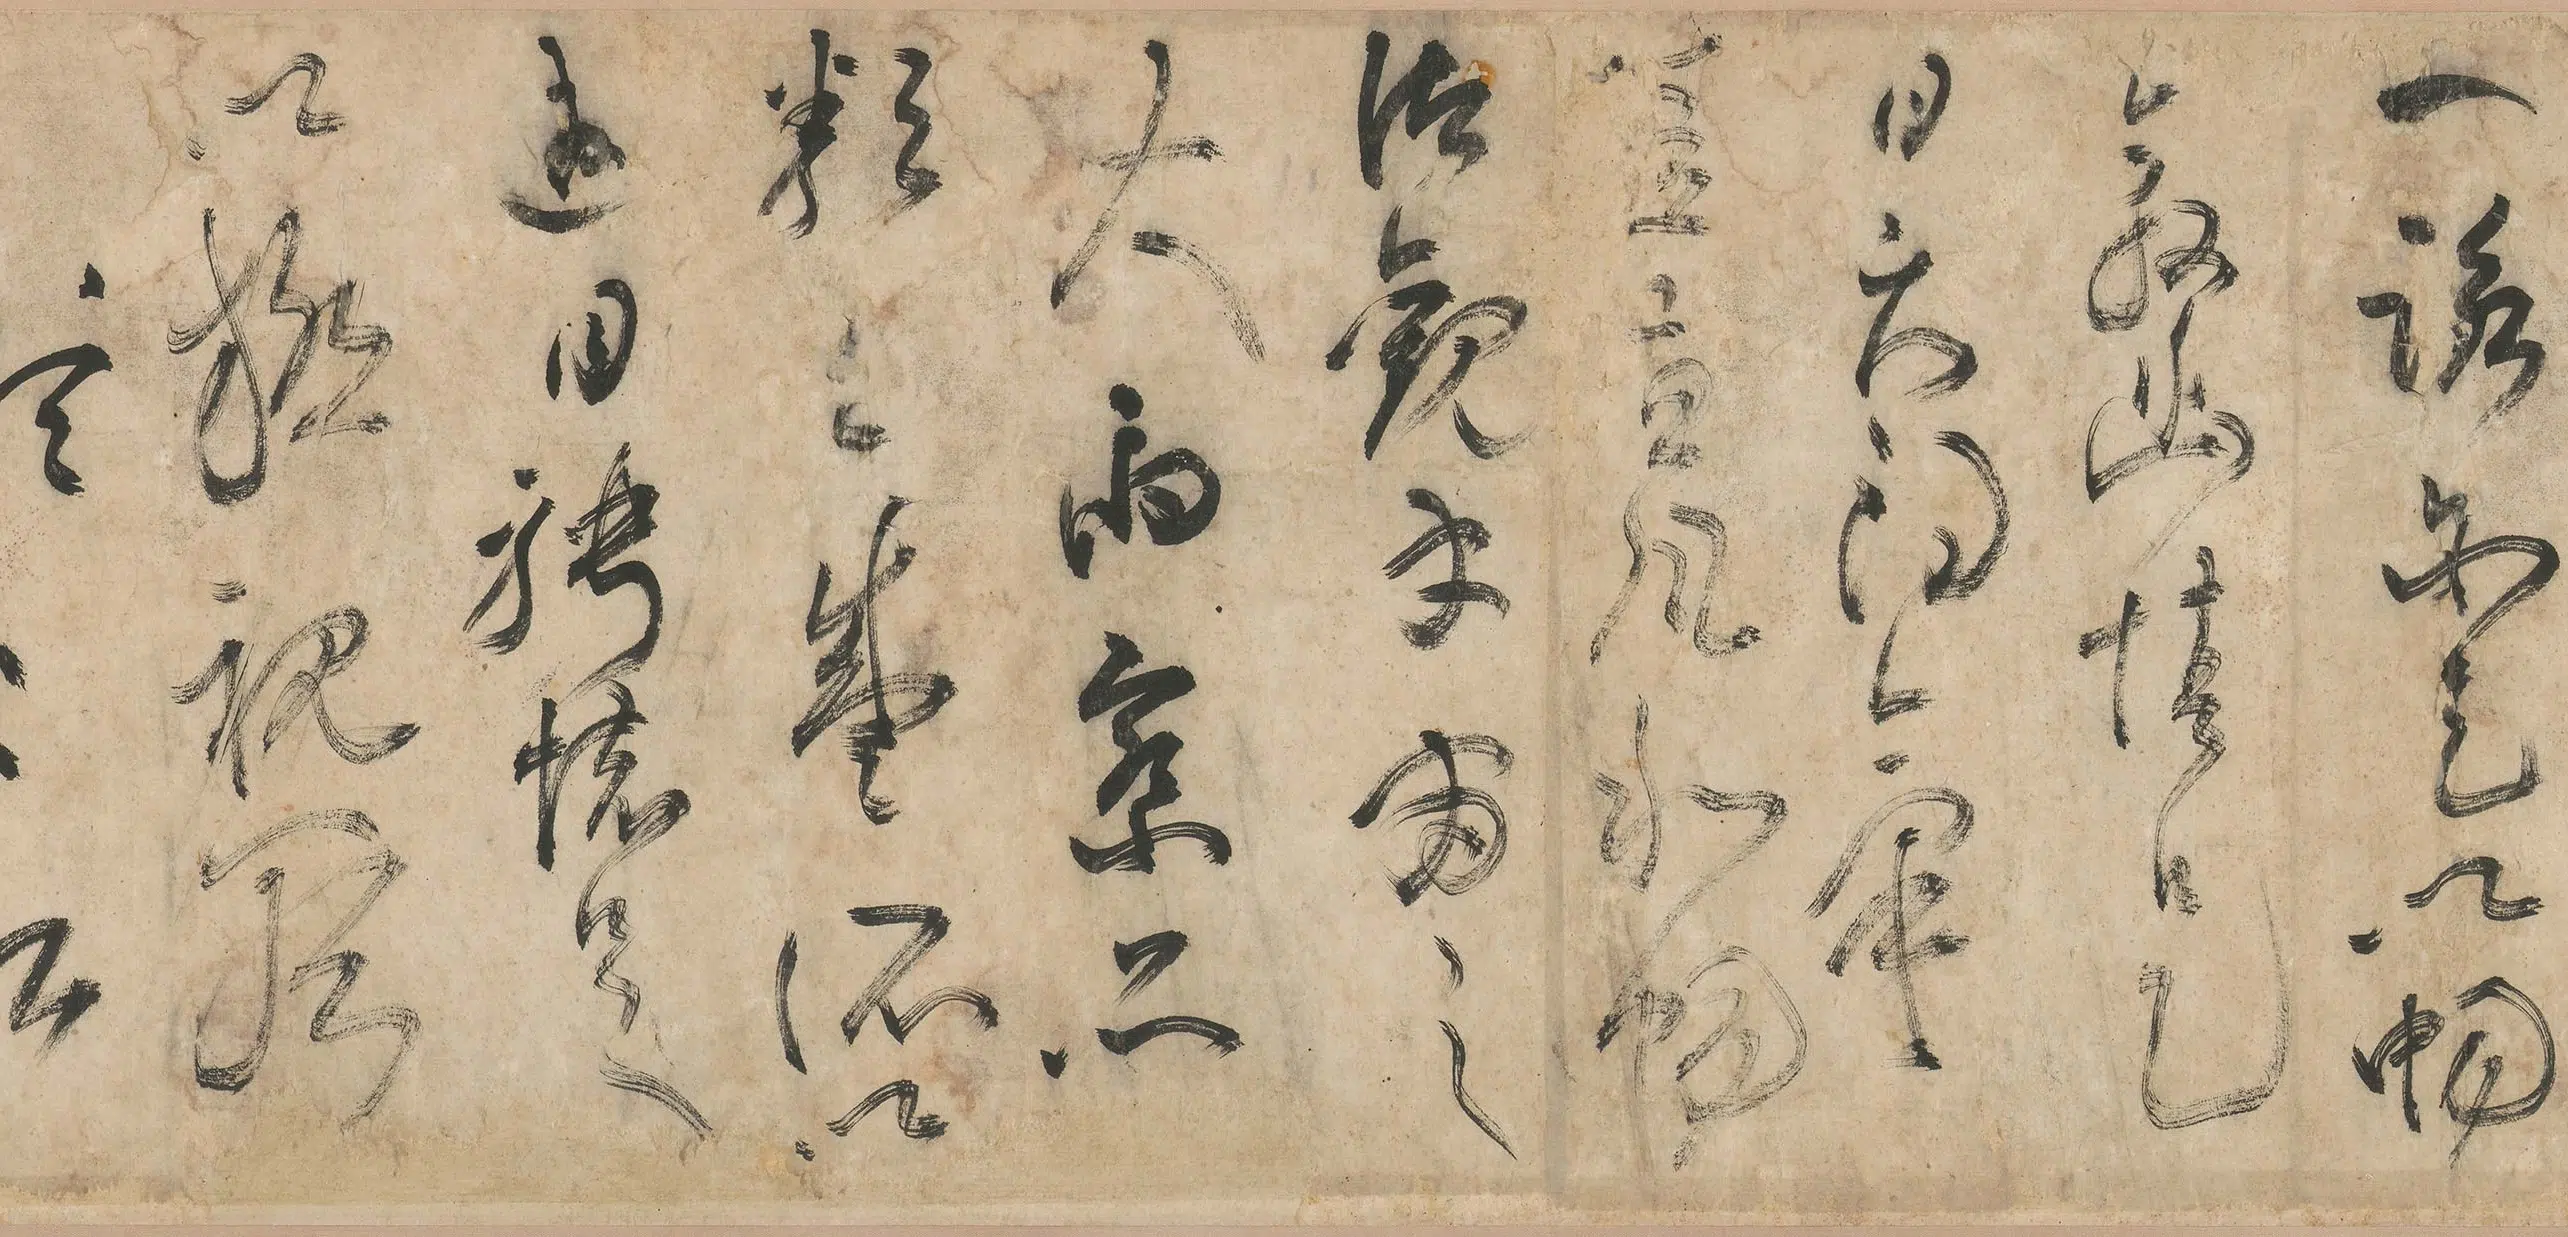 一詠亦足以暢
敘幽情是
日天朗氣
清惠風和暢
仰觀宇宙之
大俯察品
類之盛所以
遊目騁懷足
以極視聽